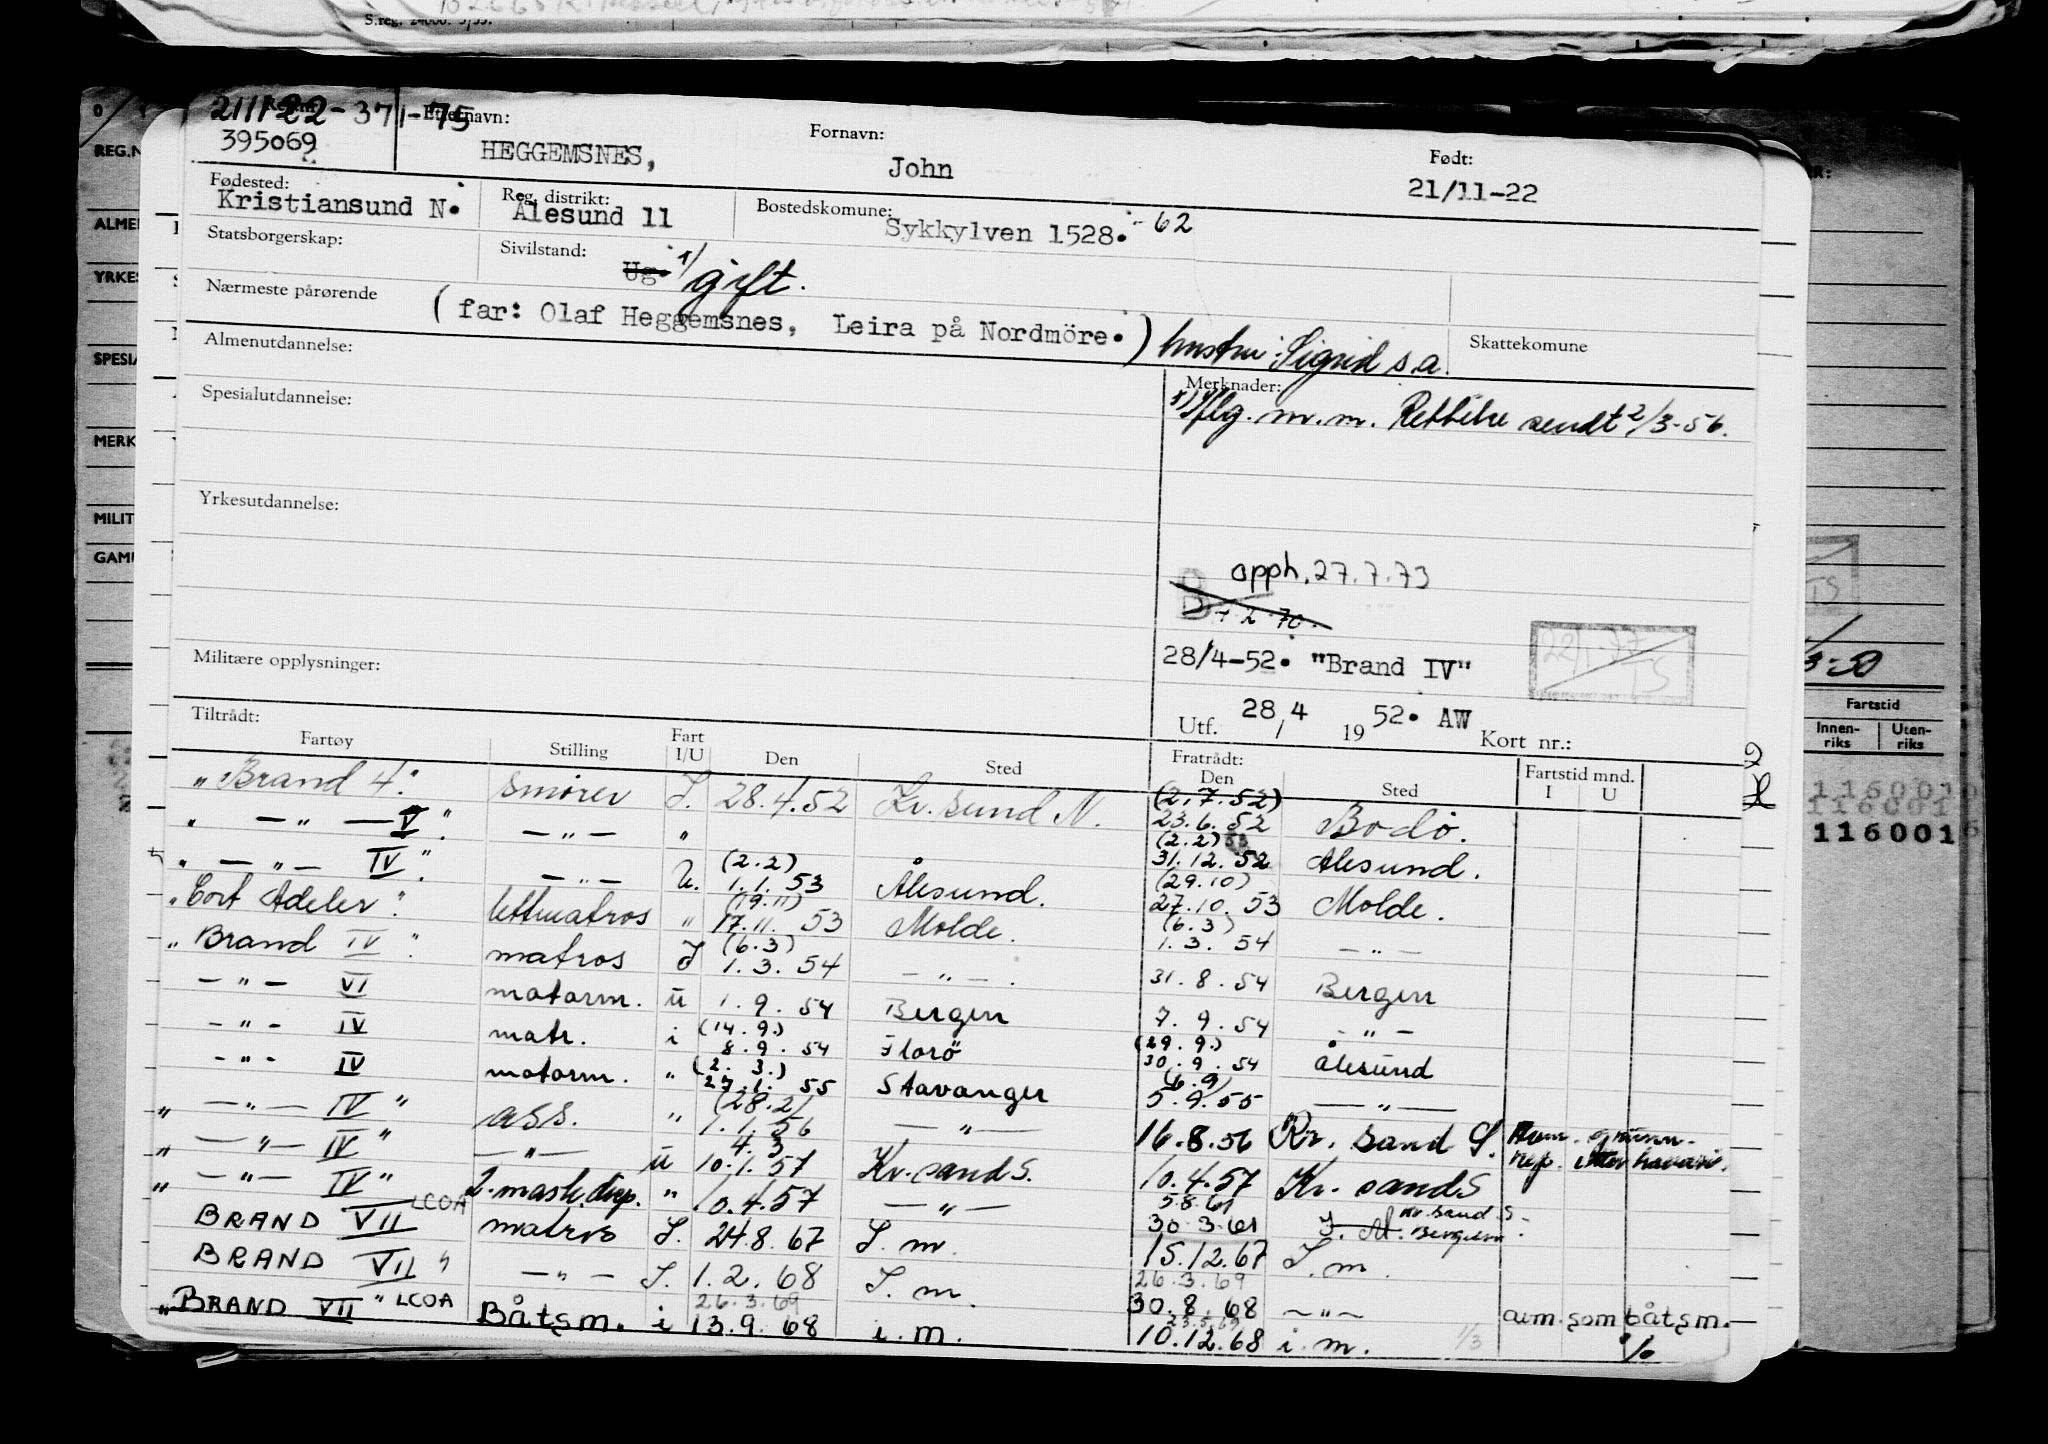 S.reg. 24000. 3/53.
211122-371-75
Etternavn:
Fornavn:
Født:
395069
HEGGEMSNES,
John
21/11-22
Fødested:
Reg. distrikt:
Bostedskomune:
Kristiansund N.
Ålesund 11
Sykkylven 1528. -62
Statsborgerskap:
Sivilstand:
Ug. 1/ gift.
Nærmeste pårørende
(far: Olaf Heggemsnes, Leira på Nordmöre.) hustru: Sigrid s.a.
Skattekomune
Almenutdannelse:
Merknader:
Spesialutdannelse:
1) Iflg. m.m. Rettelse sendt 2/3-56.
Yrkesutdannelse:
opph. 27.7.73
2.70
Militære opplysninger:
28/4-52. "Brand IV"
22/1-77 TS
Utf. 28/4 1952. AW
Kort nr.:
Tiltrådt:
Fratrådt:
Fartstid mnd.
Fartøy
Stilling
Fart I/U
Den
Sted
Den
Sted
I
U
"Brand 4." smører I. 28.4.52 Kr.sund N. (2.7.52) 23.6.52 Bodö.
" — " — V". — " — " (2.2) 53 31.12.52 Ålesund.
" — " — IV". — " — U. (2.2) 1.1.53 Ålesund. (29.10) 27.10.53 Molde.
"Cort Adeler". lettmatros " (19.11) 17.11.53 Molde. (6.3) 1.3.54 — " —
"Brand IV". matros I (6.3) 1.3.54 — " —. 31.8.54 Bergen
— " — VI motorm. u 1.9.54 Bergen 7.9.54 — " —
— " — IV matr. i (14.9.) 8.9.54 Florö (29.9.) 30.9.54 Ålesund
— " — IV motorm. " (2.3.) 27.1.55 Stavanger (6.9) 5.9.55 — " —
" — " — IV " ass. " (28.2) 1.1.56 — " — 16.8.56 Kr.sand S.
" — " — IV " — " — u 4.3 10.1.57 Kr.sand S. 10.4.57 Kr.sand S
rep. etter havari.
" — " — IV " 2.mask.disp. " 10.4.57 — " — 5.8.61 30.3.61 Kr.sand S. Bergen.
BRAND VII LCOA matros I. 24.8.67 I.m. 15.12.67 I.m.
BRAND VII " — " — I. 1.2.68 I.m. 26.3.69 30.8.68 — " —
"BRAND VII " LCOA Båtsm. i 26.3.69 13.9.68 i.m. 23.5.69 10.12.68 i.m. 1/3
aum. som båtsm.
REG.N
ALME
YRKES
SPESIA
MERK
MILIT
GAM
3-50
Fartstid
Innen-riks
Uten-riks
116001
116001
116001